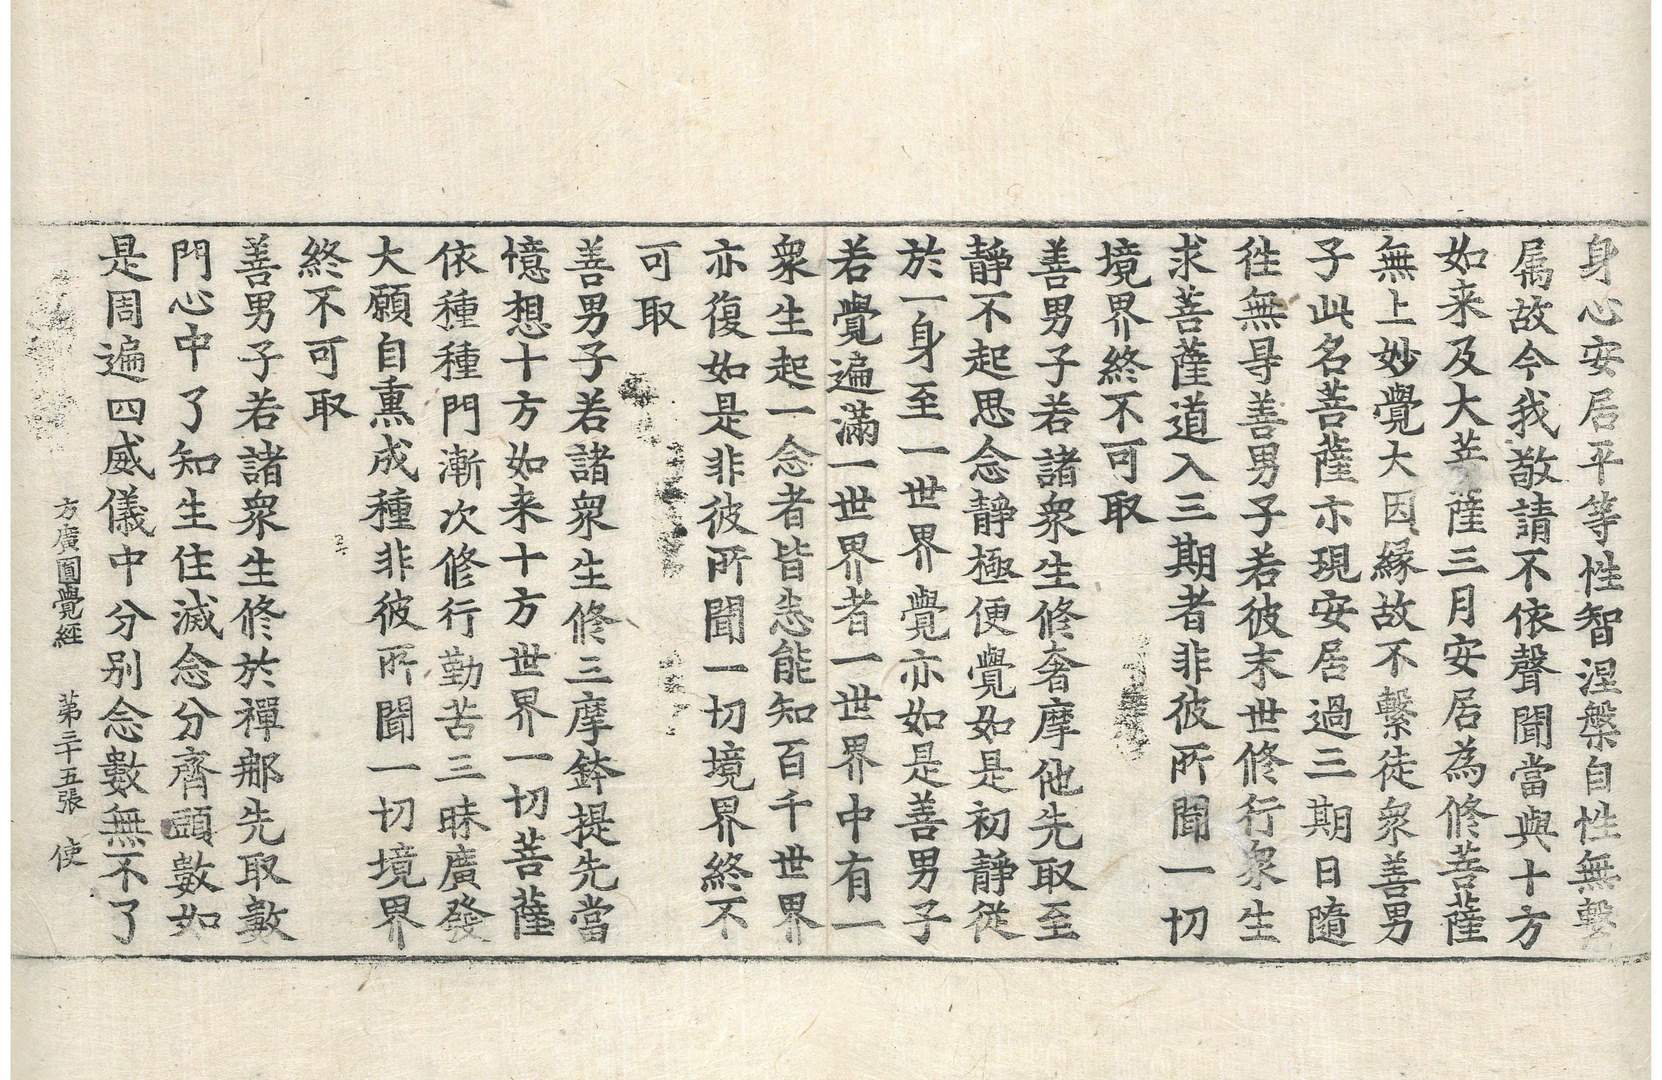 身心安居平等性智涅槃自性無繫
属故今我敬請不依聲聞當與十方
如来及大菩薩三月安居為修菩薩
無上妙覺大因緣故不繫徒衆善男
子此名菩薩示現安居過三期日隨
徃無㝵善男子若彼末世修行衆生
求菩薩道入三期者非彼所聞一切
境界終不可取
善男子若諸衆生修奢摩他先取至
靜不起思念靜極便覺如是初靜從
於一身至一世界覺亦如是善男子
若覺遍滿一世界者一世界中有一
衆生起一念者皆悉能知百千世界
亦復如是非彼所聞一切境界終不
可取
善男子若諸衆生修三摩鉢提先當
憶想十方如来十方世界一切菩薩
依種種門漸次修行勤苦三昧廣發
大願自熏成種非彼所聞一切境界
終不可取
善男子若諸衆生修於禪那先取數
門心中了知生住滅念分齊頭數如
是周遍四威儀中分别念數無不了
方廣圓覺經 第三十五張 使